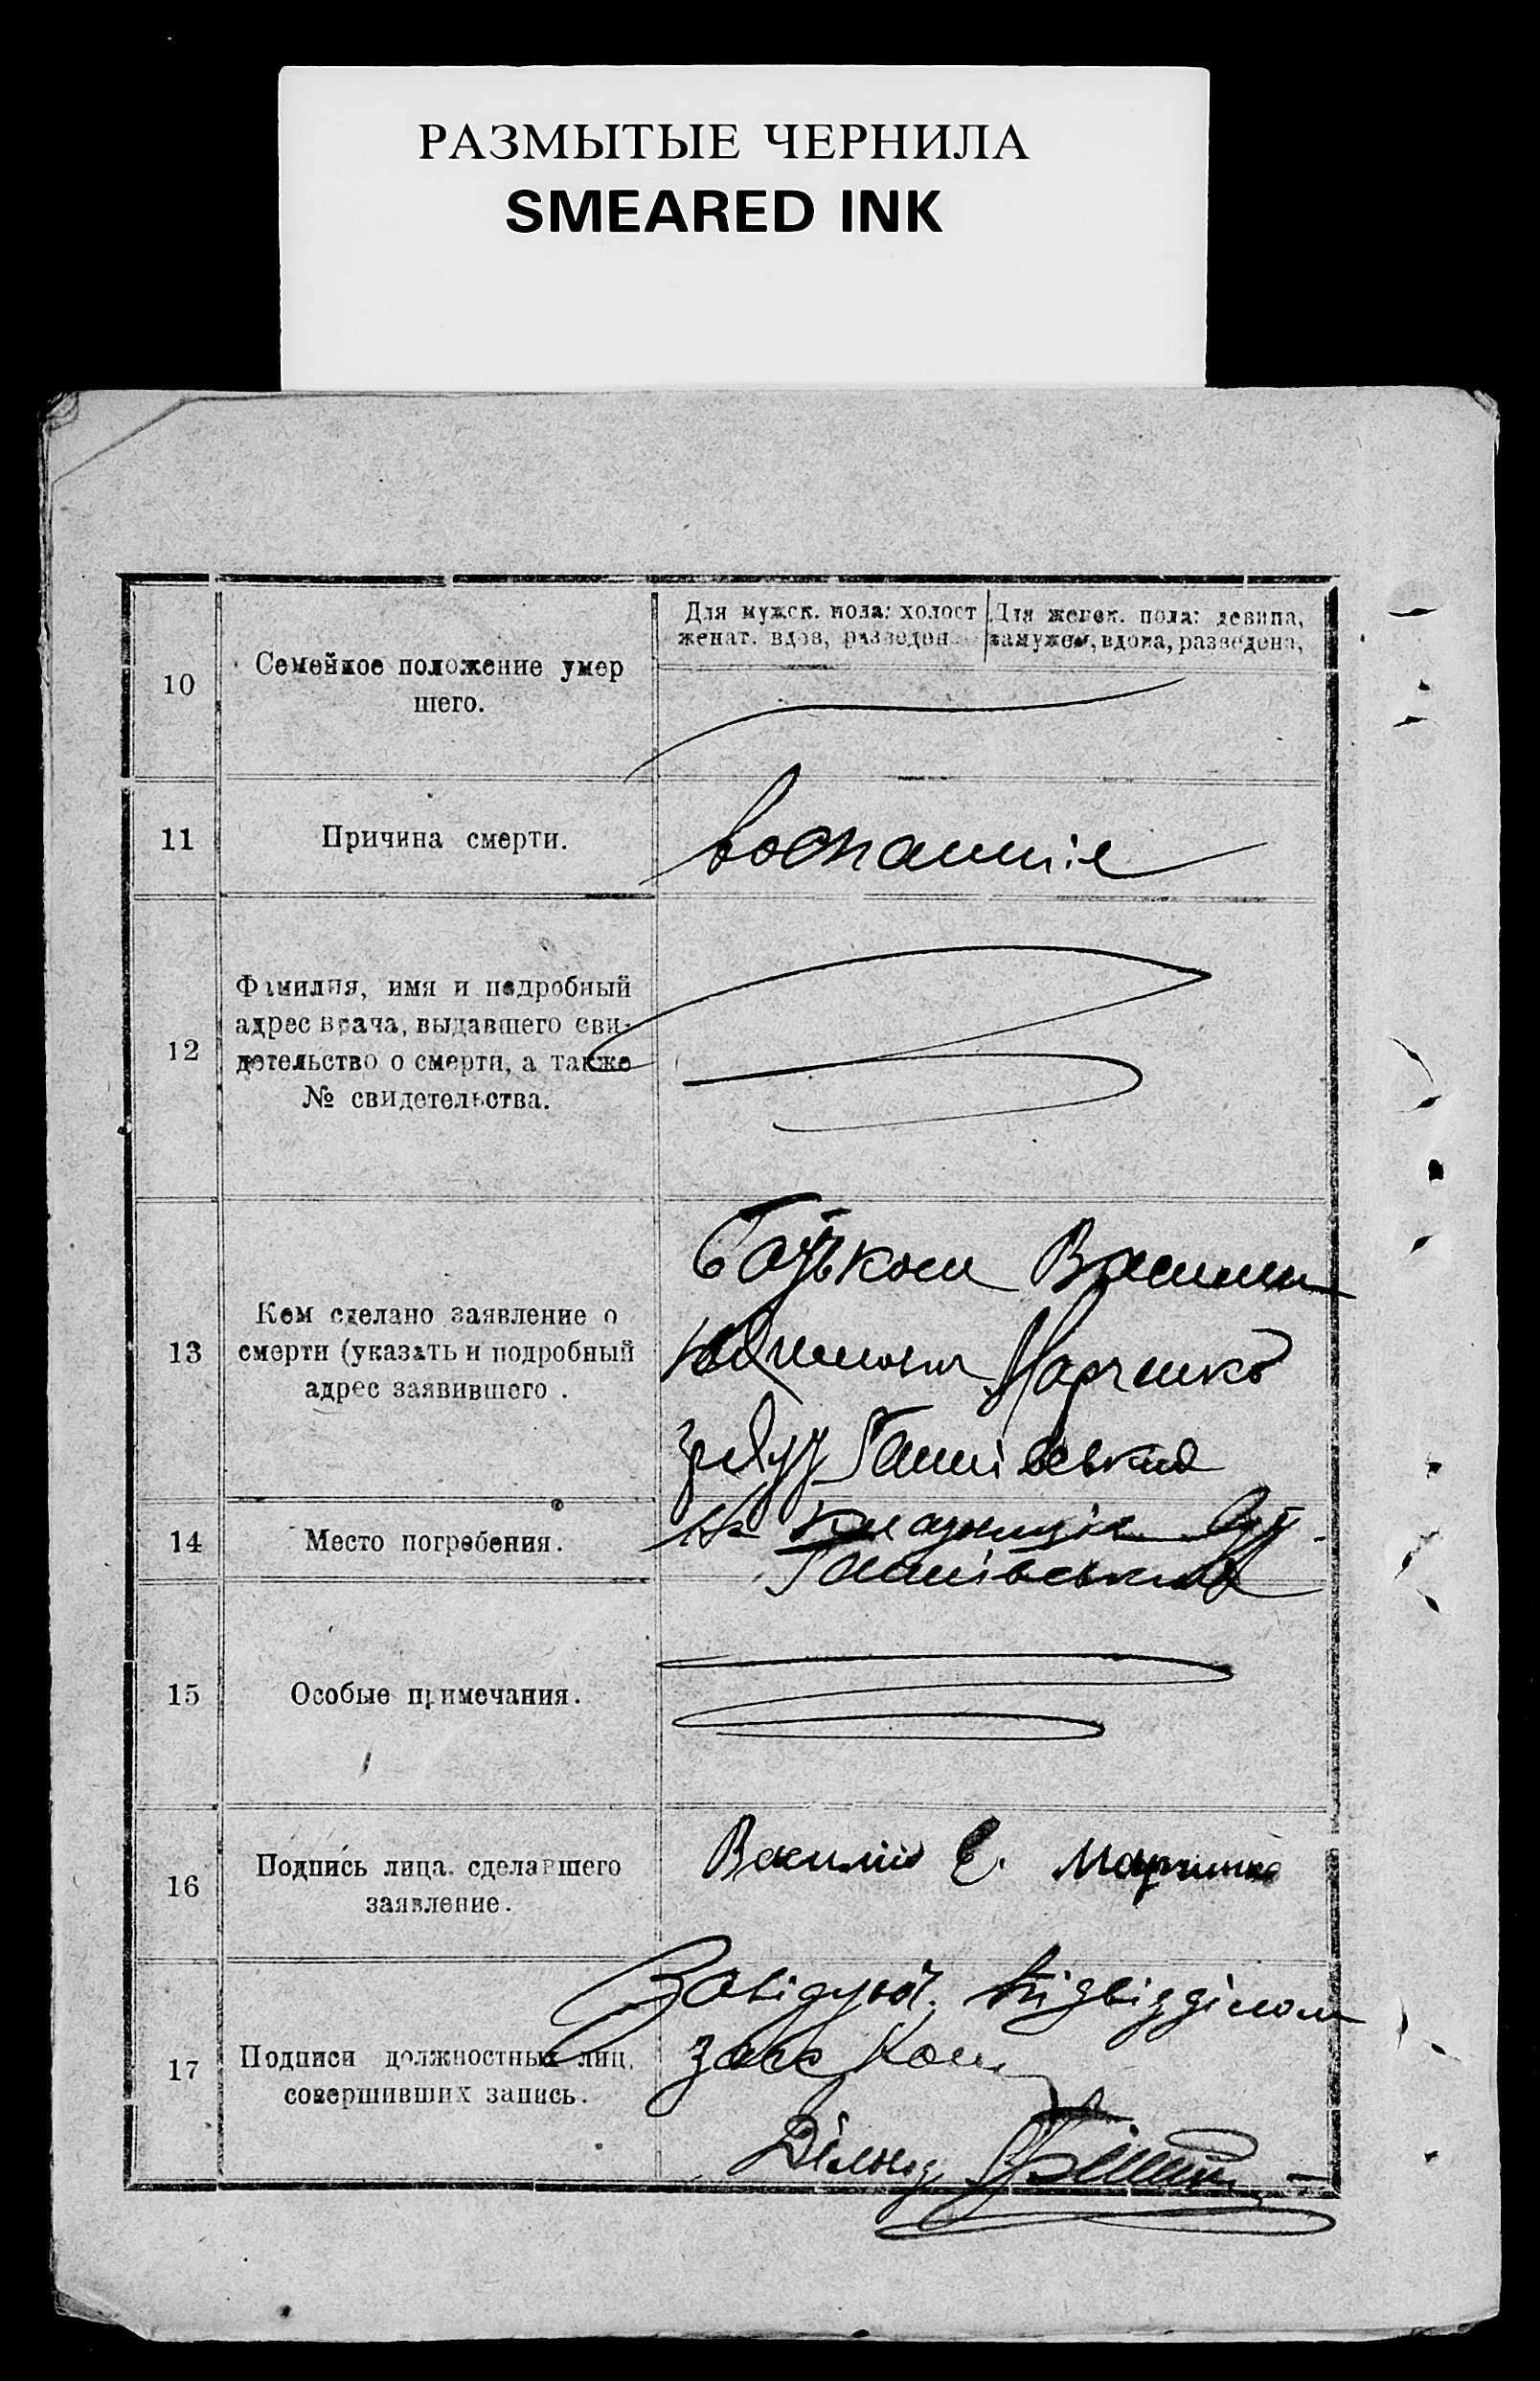 РАЗМЫТЫЕ ЧЕРНИЛА
SMEARED INK
10
Семейное положение умер
шего.
Для мужск. пола: холост
женат. вдов, разведен
Для женск. пола: девица,
замужем, вдова, разведена,
11
Причина смерти.
воспаление
12
Фамилия, имя и подробный
адрес врача, выдавшего сви-
детельство о смерти, а также
№ свидетельства.
13
Кем сделано заявление о
смерти (указать и подробный
адрес заявившего .
Батьком Василем
Марченко
14
Место погребения.
На
15
Особые примечания.
16
Подпись лица. сделавшего
заявление.
Василий Е. Марченко
17
Подписи должностных лиц,
совершивших запись.
Завідуюч. підвідділом
загс
Діловод